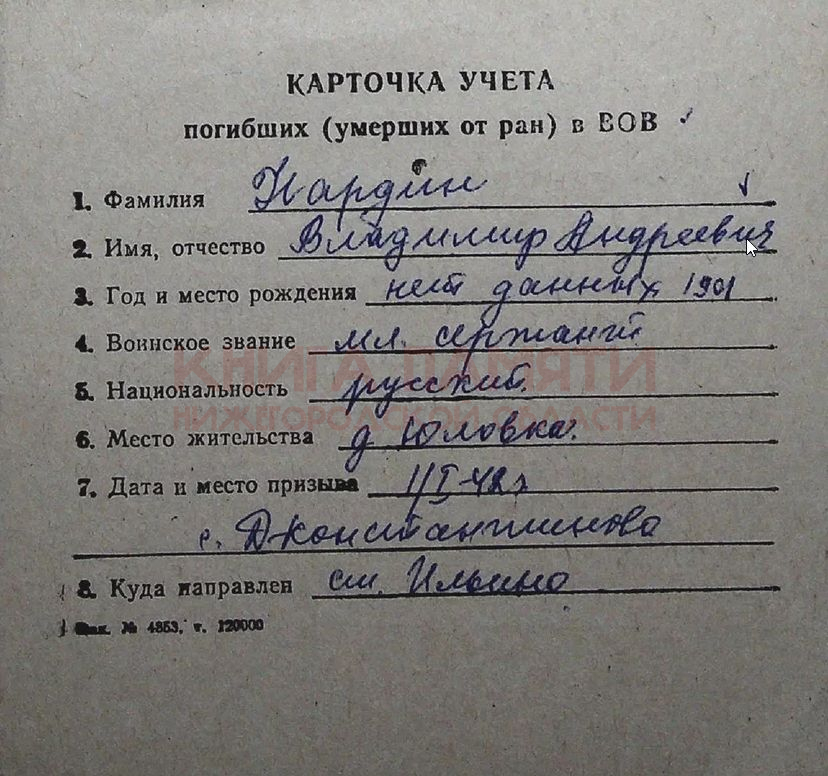 КАРТОЧКА УЧЕТА
погибших (умерших от ран) в ВОВ
1. Фамилия Нардин
2. Имя, отчество Владимир Андреевич
3. Год и место рождения нет данных 1901
4. Воинское звание мл. сержант
5. Национальность русский
6. Место жительства д Юловка.
7. Дата и место призыва 11/I-42г
с. Дконстантинова
8. Куда направлен ст. Ильино
Зак. № 4853. т. 120000
КНИГА ПАМЯТИ
НИЖЕГОРОДСКОЙ ОБЛАСТИ